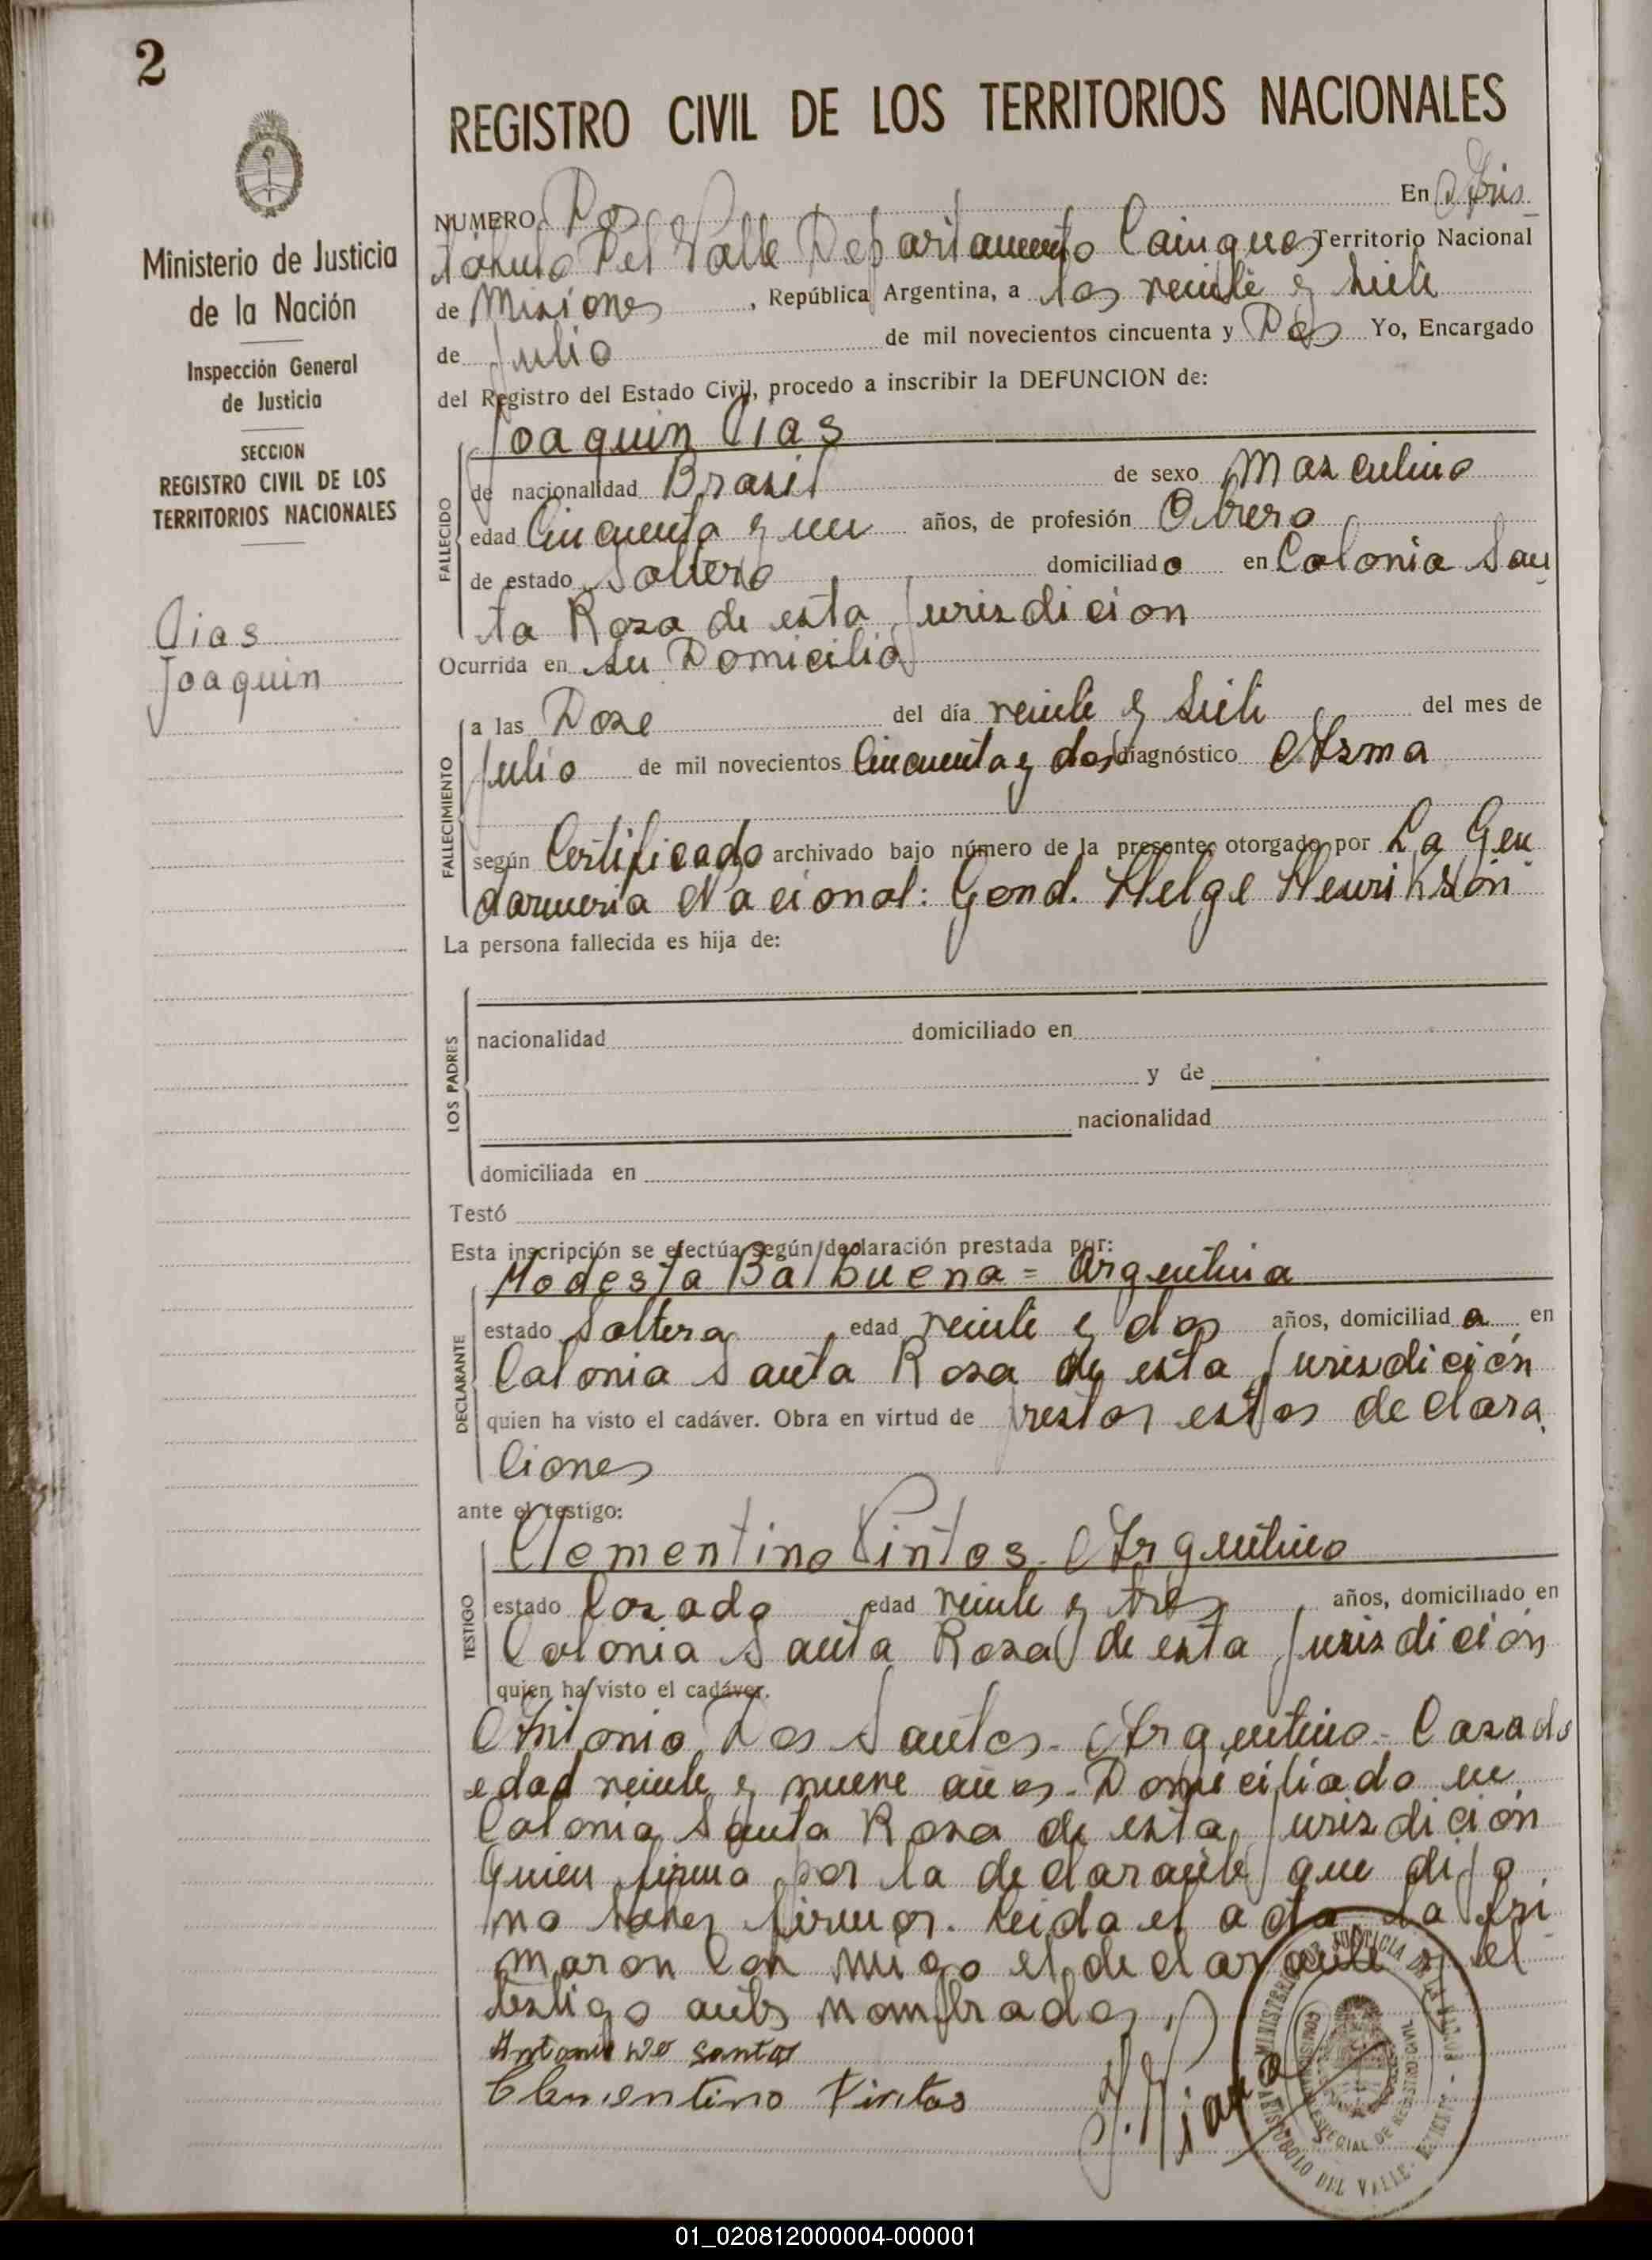 2
REGISTRO CIVIL DE LOS TERRITORIOS NACIONALES
Ministerio de Justicia
de la Nación
Inspección General
de Justicia
SECCION
REGISTRO CIVIL DE LOS
TERRITORIOS NACIONALES
Dias
Joaquin
NUMERO Dos En Aris
tóbulo Del Valle Departamento Cainguas Territorio Nacional
de Misiones, República Argentina, a los veinte y siete
de Julio de mil novecientos cincuenta y Dos Yo, Encargado
del Registro del Estado Civil, procedo a inscribir la DEFUNCION de:
Joaquin Dias
FALLECIDO
de nacionalidad Brasil de sexo Masculino
edad Cincuenta y un años, de profesión Obrero
de estado Soltero domiciliado en Colonia San
ta Rosa de esta Jurisdicion
Ocurrida en su Domicilio
FALLECIMIENTO
a las Doze del día veinte y siete del mes de
Julio de mil novecientos Cincuenta y dos diagnóstico Asma
según Certificado archivado bajo número de la presente, otorgado por La Gen
darmeria Nacional: Gend. Helge Henrikson
La persona fallecida es hija de:
LOS PADRES
nacionalidad domiciliado en
y de
nacionalidad
domiciliada en
Testó
Esta inscripción se efectúa según declaración prestada por:
Modesta Balbuena = Argentina
DECLARANTE
estado Soltera edad veinte y dos años, domiciliada en
Colonia Santa Rosa de esta Jurisdición
quien ha visto el cadáver. Obra en virtud de prestar estas declara
ciones
ante el testigo:
Clementino Pintos - Argentino
TESTIGO
estado Casado edad veinte y tres años, domiciliado en
Colonia Santa Rosa de esta Jurisdición
quien ha visto el cadáver.
Antonio Dos Santos - Argentino - Casado
edad veinte y nueve años - Domiciliado en
Colonia Santa Rosa de esta Jurisdición
Quien firma por la declarante que dijo
no saber firmar. Leida el acta la fri
maron Con migo el declarante y el
testigo antes nombrados.
Antonio Do Santos
Clementino Pintos
MINISTERIO DE JUSTICIA DE LA NACION
ESPECIAL DE REGISTRO CIVIL
ARISTOBULO DEL VALLE
01_020812000004-000001